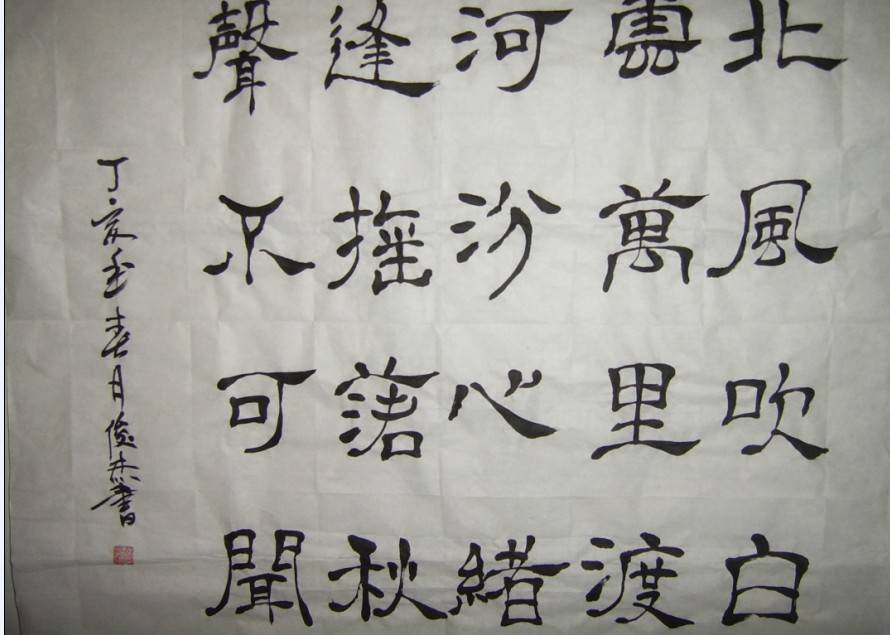 北風吹白
雲萬里渡
河汾心緒
逢搖落秋
聲不可聞
丁亥年春月俊杰書